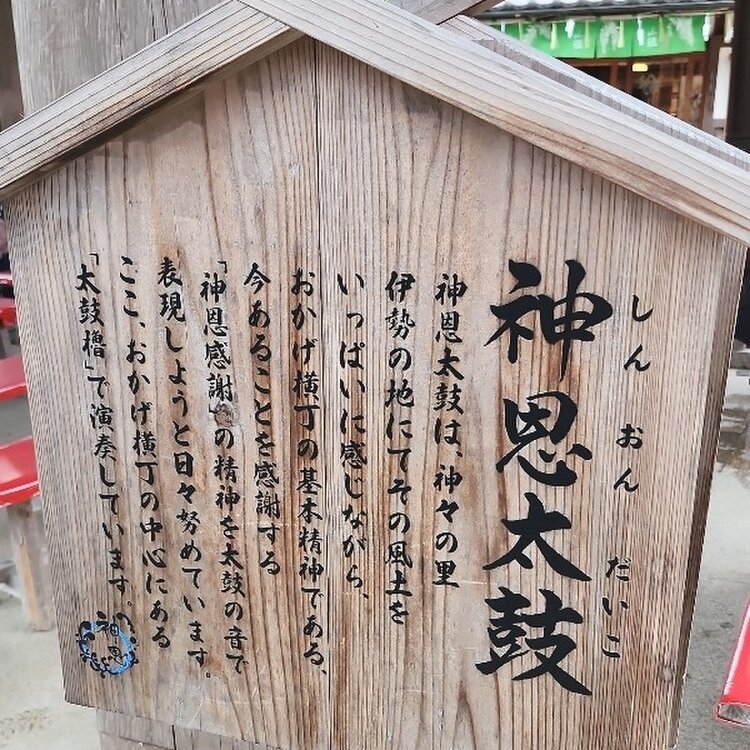 神恩太鼓
しんおんだいこ
神恩太鼓は、神々の里
伊勢の地にてその風土を
いっぱいに感じながら、
おかげ横丁の基本精神である、
今あることを感謝する
「神恩感謝」の精神を太鼓の音で
表現しようと日々努めています。
ここ、おかげ横丁の中心にある
「太鼓櫓」で演奏しています。
神恩